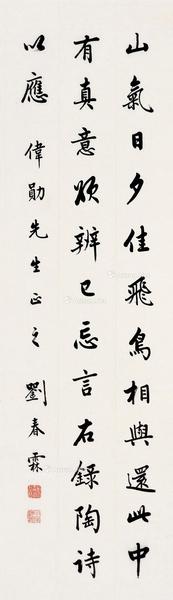 山氣日夕佳飛鳥相與還此中
有真意欲辨已忘言右錄陶詩
以應偉勛先生正之劉春霖